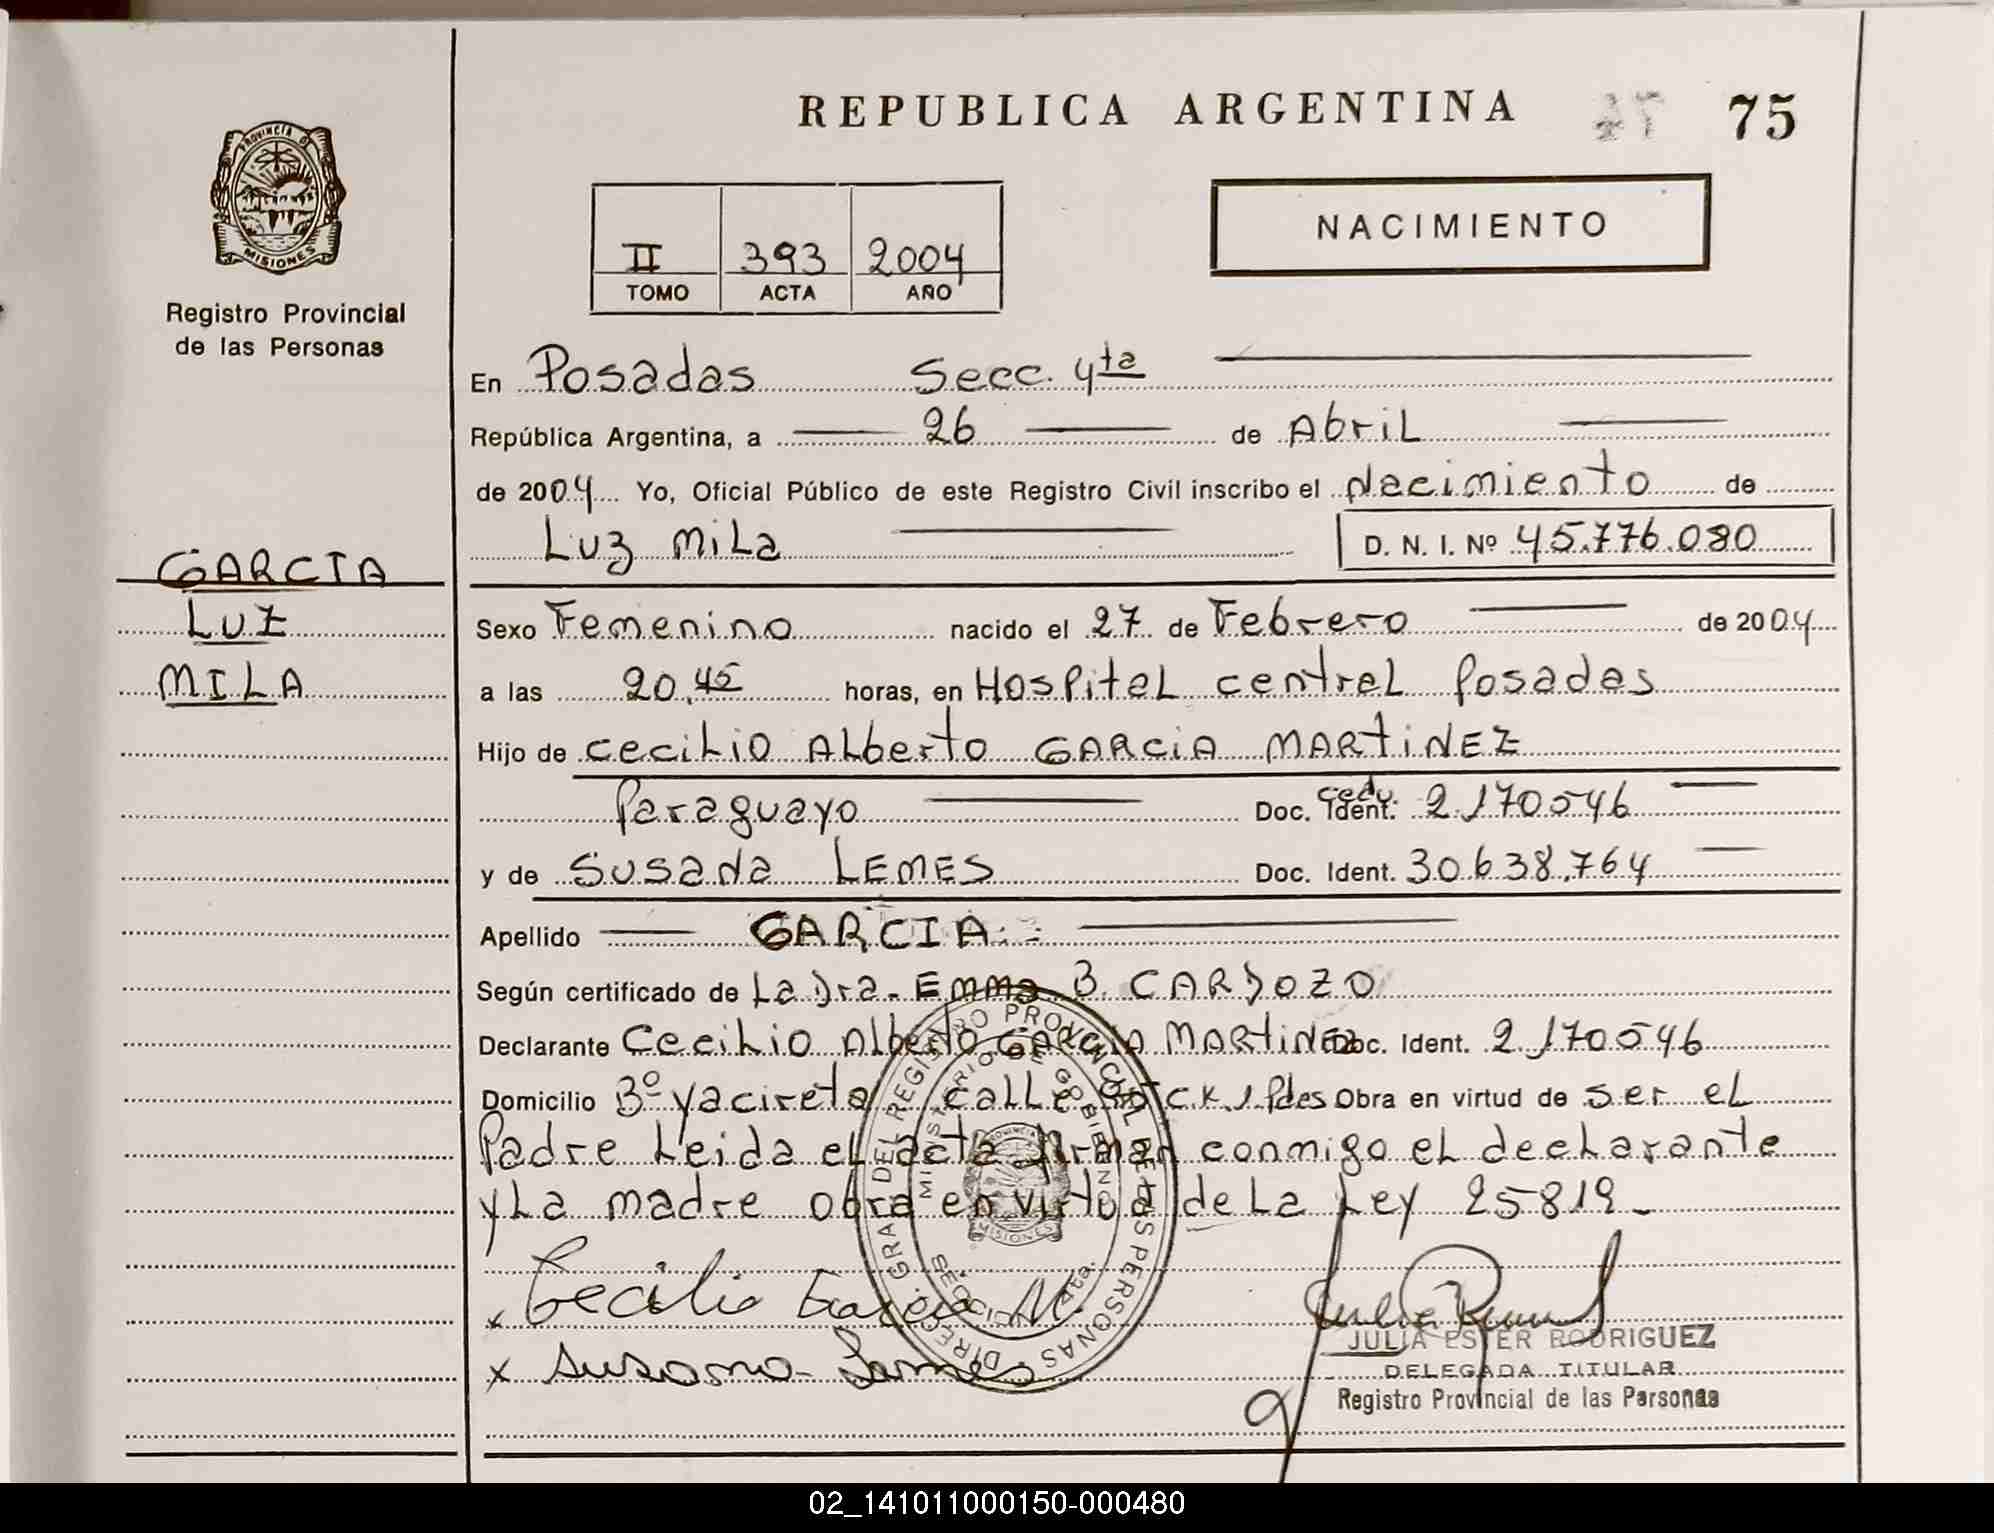 REPUBLICA ARGENTINA 75
PROVINCIA D
MISIONES
Registro Provincial
de las Personas
NACIMIENTO
II 393 2004
TOMO ACTA AÑO
En Posadas Secc. 4ta
República Argentina, a 26 de Abril
de 2004 Yo, Oficial Público de este Registro Civil inscribo el Nacimiento de
Luz Mila D. N. I. Nº 45.776.080
GARCIA
LUZ
MILA
Sexo Femenino nacido el 27 de Febrero de 2004
a las 20,45 horas, en Hospital central Posadas
Hijo de Cecilio Alberto GARCIA MARTINEZ
Paraguayo Doc. Ident. cedu 2.170546
y de Susana LEMES Doc. Ident. 30.638.764
Apellido GARCIA
Según certificado de La Dra. Emma B. CARDOZO
Declarante Cecilio Alberto GARCIA MARTINEZ Doc. Ident. 2.170546
Domicilio Bº yacireta calle CK.1 Pdes Obra en virtud de ser el
Padre Leida el acta firman conmigo el declarante
y La madre obra en virtud de La Ley 25819-
DIREC. GRAL. DEL REGISTRO PROVINCIAL DE LAS PERSONAS
MINISTERIO DE GOBIERNO
SECCION 4ta.
MISIONES
x Cecilio Garcia M.
x Susana Lemes
JULIA ESTER RODRIGUEZ
DELEGADA TITULAR
Registro Provincial de las Personas
02_141011000150-000480